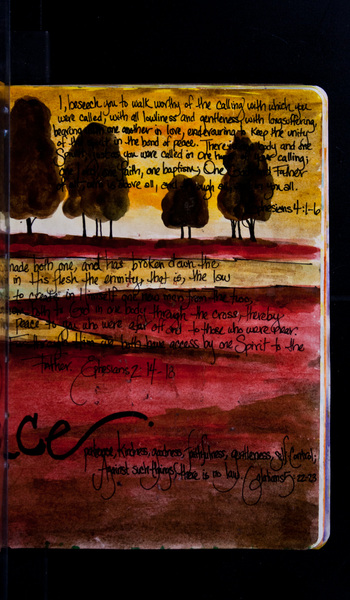 I, beseech you to walk worthy of the calling with which you
were called, with all lowliness and gentleness, with longsuffering,
bearing with one another in love, endeavouring to keep the unity
of the in the bond of peace. There is body and one
you were called in one of your calling;
faith, one baptism; One Father
above all, and you all.
4:1-6
made both one, and has broken down the
in His flesh the enmity, that is, the law
to create in Himself one new man from the two,
God in one body through the cross, thereby
peace to you who were afar off and to those who were near.
both have access by one Spirit to the
Father. Ephesians 2:14-18
ce
patience, kindness, goodness, faithfulness, gentleness, self control;
Against such things, there is no law. Galatians 5:22-23